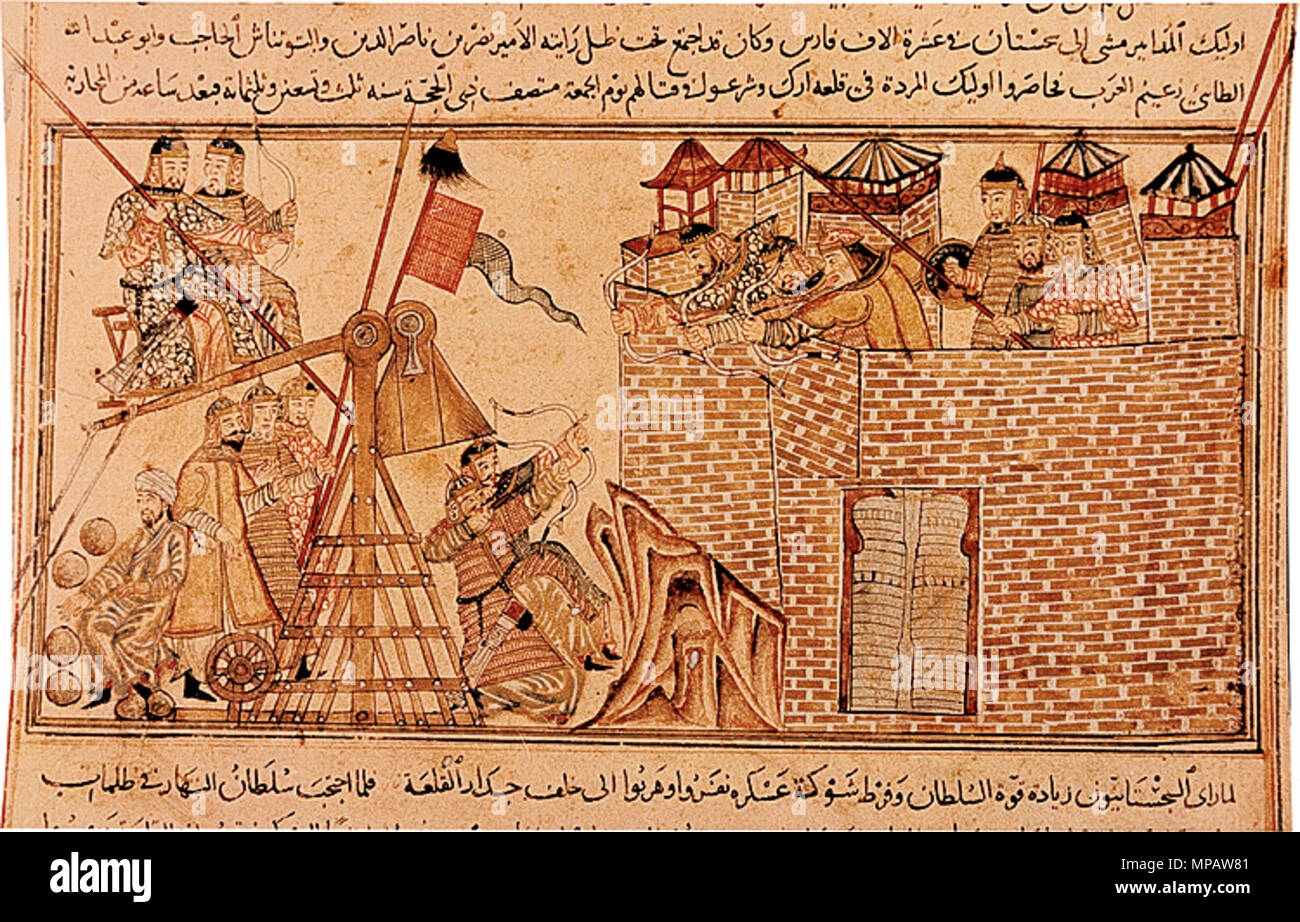 اوليك المدابير مشى الى سجستان في عشرة الاف فارس وكان قد اجتمع تحت ظل رايته الامير نصر بن ناصر الدين والتونتاش الحاجب وابو عبد الله
الطائي زعيم العرب فحاصروا اوليك المردة في قلعة ارك وشرعوا في قتالهم يوم الجمعة منتصف ذي الحجة سنه ثلث وتسعين وثلثمائة فبعد ساعة من المحاربة
لما راى السجستانيون زيادة قوة السلطان وفرط شوكة عسكره نفروا وهربوا الى خلف جدار القلعة فلما احتجب سلطان النهار في ظلمات
alamy
Image ID: MPAW81
www.alamy.com